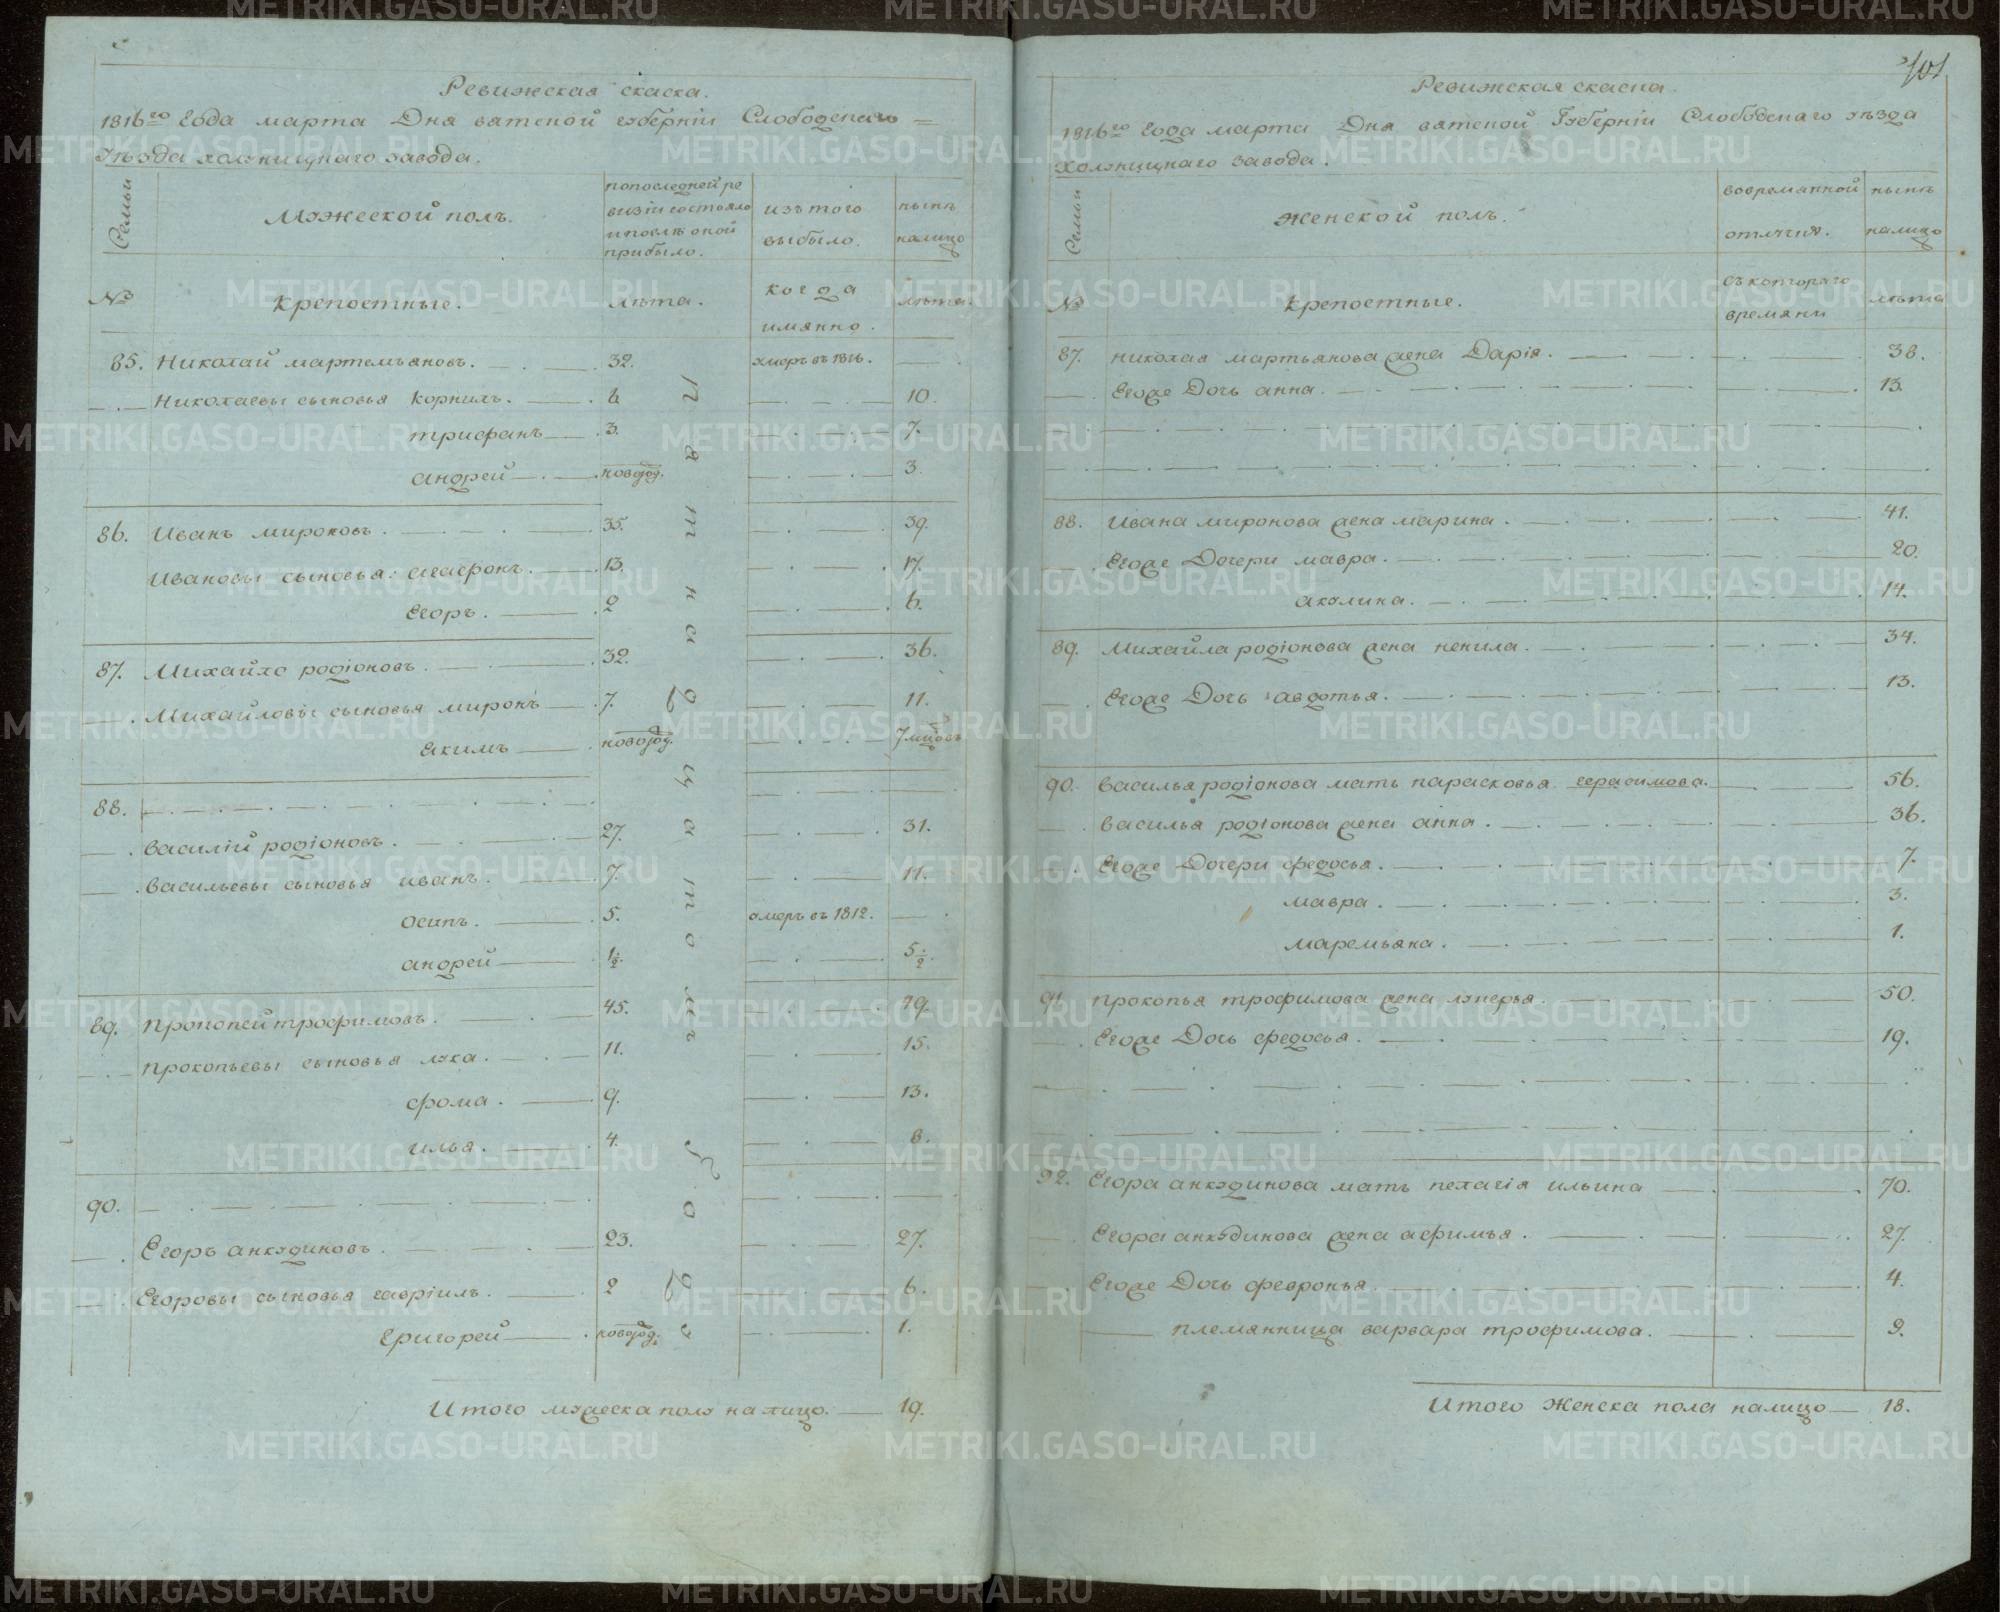 Ревижская скаска.
1816го Года марта Дня вятской губерніи Слободскаго =
Уѣзда холуницкаго завода.
Семьи
Мужеской полъ.
попоследней ре
визіи состояло
ипослѣ оной
прибыло.
изъ того
выбыло.
нынѣ
налицо
№
крепостные.
лѣта.
когда
имянно.
лѣта.
85. Николай мартемьяновъ. 32. умеръ въ 1816.
Николаевы сыновья корнилъ. 6 10.
трифанъ 3. 7.
андрей новород. 3.
86. Иванъ мироновъ. 35. 39.
Ивановы сыновья: агафонъ. 13. 17.
Егоръ. 2 6.
87. Михайло родіоновъ. 32. 36.
Михайловы сыновья миронъ 7. 11.
екимъ новород. 7 мцовъ
88.
Василій родіоновъ. 27. 31.
Васильевы сыновья иванъ. 7. 11.
осипъ. 5. умеръ въ 1812.
андрей 1½. 5½.
89. Прокопей трофимовъ. 45. 49.
Прокопьевы сыновья лука. 11. 15.
фома. 9. 13.
илья. 4. 8.
90.
Егоръ анкудиновъ. 23. 27.
Егоровы сыновья гавріилъ. 2 6.
Григорей новород. 1.
Итого мужеска полу на лицо. 19.
401
Ревижская скаска.
1816го Года марта Дня вятской Губерніи Слободскаго уѣзда
Холуницкаго завода.
Семьи
Женской полъ.
вовременной
отлучкѣ.
нынѣ
налицо
№
крепостные.
съ котораго
времяни
лѣта
87. николая мартьянова жена Дарія. 38.
Егоже Дочь анна. 13.
88. Ивана миронова жена марина. 41.
Егоже Дочери мавра. 20.
акулина. 14.
89. Михайла родіонова жена ненила. 34.
Егоже Дочь авдотья. 13.
90. Василья родіонова мать парасковья герасимова. 56.
Василья родіонова жена анна. 36.
Егоже Дочери федосья. 7.
мавра. 3.
маремьяна. 1.
91. прокопья трофимова жена лукерья. 50.
Егоже Дочь федосья. 19.
92. Егора анкудинова мать пелагія ильина 70.
Егора анкудинова жена афимья. 27.
Егоже Дочь февронья. 4.
племянница варвара трофимова. 9.
Итого Женска пола налицо 18.
METRIKI.GASO-URAL.RU